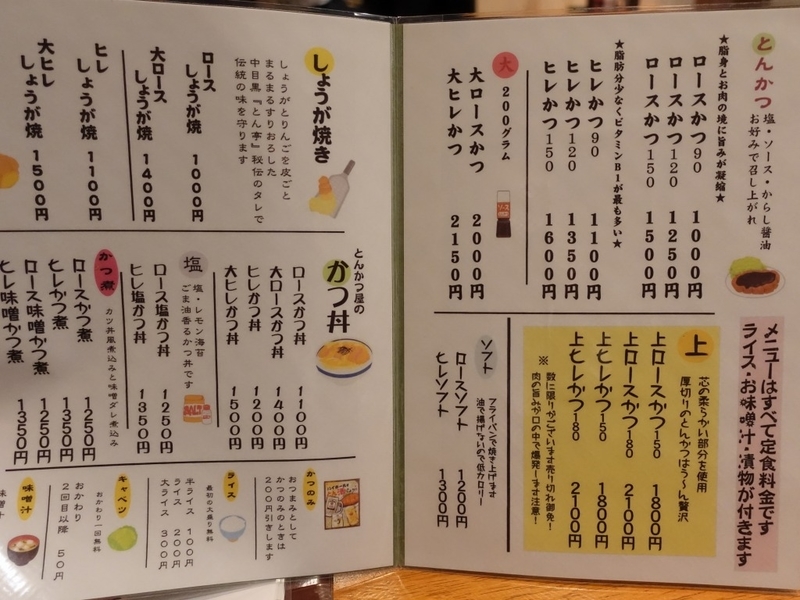 とんかつ
塩・ソース・からし醤油
お好みで召し上がれ
★脂身とお肉の境に旨みが凝縮★
ロースかつ90 1000円
ロースかつ120 1250円
ロースかつ150 1500円
★脂肪分少なくビタミンB1が最も多い★
ヒレかつ90 1100円
ヒレかつ120 1350円
ヒレかつ150 1600円
大 200グラム
大ロースかつ 2000円
大ヒレかつ 2150円
メニューはすべて定食料金です
ライス・お味噌汁・漬物が付きます
上 芯の柔らかい部分を使用
厚切りのとんかつはう〜ん贅沢
上ロースかつ150 1800円
上ロースかつ180 2100円
上ヒレかつ150 1800円
上ヒレかつ180 2100円
※数に限りがございます売り切れ御免!
肉の旨みが口の中で爆発します注意!
ソフト
フライパンで焼き上げます
油で揚げないので低カロリー
ロースソフト 1200円
ヒレソフト 1300円
しょうが焼き
しょうがとりんごを皮ごと
まるまるすりおろした
中目黒『とん亭』秘伝のタレで
伝統の味を守ります
ロースしょうが焼 1000円
大ロースしょうが焼 1400円
ヒレしょうが焼 1100円
大ヒレしょうが焼 1500円
とんかつ屋の
かつ丼
ロースかつ丼 1100円
大ロースかつ丼 1400円
ヒレかつ丼 1200円
大ヒレかつ丼 1500円
塩
塩・レモン海苔
ごま油香るかつ丼です
ロース塩かつ丼 1250円
ヒレ塩かつ丼 1350円
かつ煮
カツ丼風煮込みと味噌ダレ煮込み
ロースかつ煮 1250円
ヒレかつ煮 1350円
ロース味噌かつ煮 1250円
ヒレ味噌かつ煮 1350円
かつのみ
おつまみとして
かつのみのときは
200円引きします
ライス
最初の大盛り無料
半ライス 100円
ライス 200円
大ライス 300円
キャベツ
おかわり一回無料
おかわり
2回目以降 50円
味噌汁
味噌汁